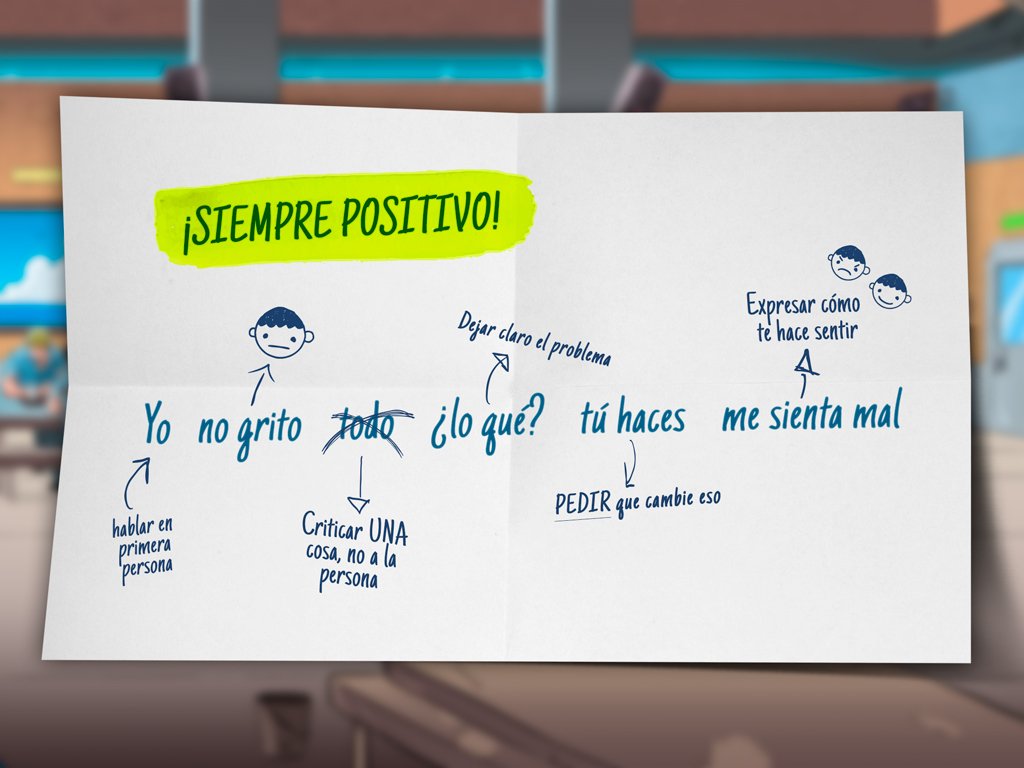 ¡SIEMPRE POSITIVO!
Expresar cómo
te hace sentir
Dejar claro el problema
Yo no grito todo ¿lo qué? tú haces me sienta mal
hablar en
primera
persona
Criticar UNA
cosa, no a la
persona
PEDIR que cambie eso